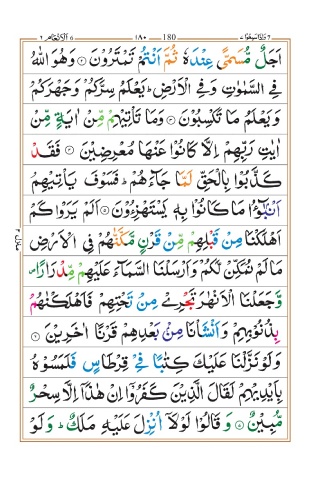 وَاِذَا سَمِعُوْا ٧ 180 ١٨٠ اَلْاَنْعَام ٦
اَجَلٌ مُّسَمًّى عِنْدَهٗ ثُمَّ اَنْتُمْ تَمْتَرُوْنَ ۝ وَهُوَ اللّٰهُ
فِى السَّمٰوٰتِ وَفِى الْاَرْضِ ؕ يَعْلَمُ سِرَّكُمْ وَجَهْرَكُمْ
وَيَعْلَمُ مَا تَكْسِبُوْنَ ۝ وَمَا تَاْتِيْهِمْ مِّنْ اٰيَةٍ مِّنْ
اٰيٰتِ رَبِّهِمْ اِلَّا كَانُوْا عَنْهَا مُعْرِضِيْنَ ۝ فَقَدْ
كَذَّبُوْا بِالْحَقِّ لَمَّا جَآءَهُمْ ؕ فَسَوْفَ يَاْتِيْهِمْ
اَنْۢبٰٓؤُا مَا كَانُوْا بِهٖ يَسْتَهْزِءُوْنَ ۝ اَلَمْ يَرَوْا كَمْ
اَهْلَكْنَا مِنْ قَبْلِهِمْ مِّنْ قَرْنٍ مَّكَّنّٰهُمْ فِى الْاَرْضِ
مَا لَمْ نُمَكِّنْ لَّكُمْ وَاَرْسَلْنَا السَّمَآءَ عَلَيْهِمْ مِّدْرَارًا ۪
وَّجَعَلْنَا الْاَنْهٰرَ تَجْرِىْ مِنْ تَحْتِهِمْ فَاَهْلَكْنٰهُمْ
بِذُنُوْبِهِمْ وَاَنْشَاْنَا مِنْۢ بَعْدِهِمْ قَرْنًا اٰخَرِيْنَ ۝
وَلَوْ نَزَّلْنَا عَلَيْكَ كِتٰبًا فِىْ قِرْطَاسٍ فَلَمَسُوْهُ
بِاَيْدِيْهِمْ لَقَالَ الَّذِيْنَ كَفَرُوْۤا اِنْ هٰذَاۤ اِلَّا سِحْرٌ
مُّبِيْنٌ ۝ وَقَالُوْا لَوْلَاۤ اُنْزِلَ عَلَيْهِ مَلَكٌ ؕ وَلَوْ